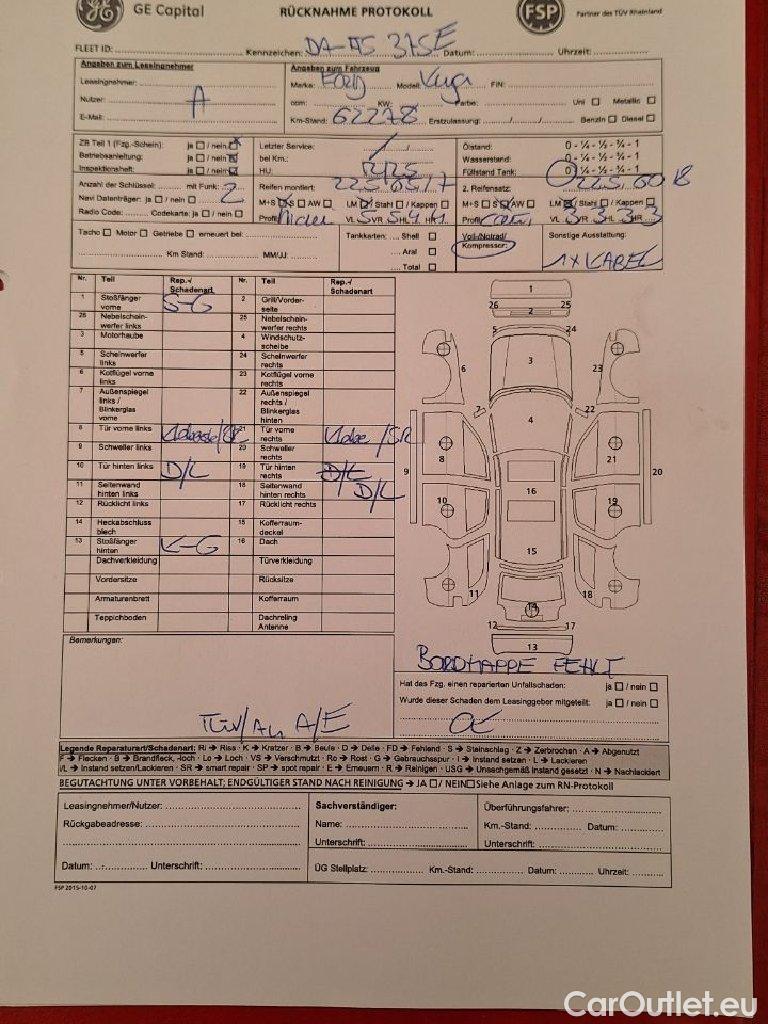 GE Capital
RÜCKNAHME PROTOKOLL
FSP
Partner des TÜV Rheinland
FLEET ID: Kennzeichen: DA-AS 375E Datum: Uhrzeit:
Angaben zum Leasingnehmer
Angaben zum Fahrzeug
Leasingnehmer:
Marke: FORD Modell: Kuga FIN:
Nutzer: A
ccm: KW: Farbe: Uni Metallic
E-Mail:
Km-Stand: 62278 Erstzulassung: Benzin Diesel
ZB Teil 1 (Fzg.-Schein): ja / nein
Betriebsanleitung: ja / nein
Inspektionsheft: ja / nein
Letzter Service:
bei Km.:
HU:
Ölstand: 0 - ¼ - ½ - ¾ - 1
Wasserstand: 0 - ¼ - ½ - ¾ - 1
Füllstand Tank: 0 - ¼ - ½ - ¾ - 1
Anzahl der Schlüssel: mit Funk: 2
Navi Datenträger: ja / nein
Radio Code: Codekarte: ja / nein
Reifen montiert: 225 65 17
M+S S AW LM Stahl / Kappen
Profil VL 5 VR 5 HL 4 HR
2. Reifensatz: 225 60 18
M+S S AW LM Stahl / Kappen
Profil VL 3 VR 3 HL 3 HR 3
Tacho Motor Getriebe erneuert bei:
Km Stand: MM/JJ:
Tankkarten: Shell
Aral
Total
Voll-/Notrad/
Kompressor:
Sonstige Ausstattung:
1X KABEL
Nr. Teil Rep.-/ Schadenart Nr. Teil Rep.-/ Schadenart
1 Stoßfänger vorne S-G 2 Grill/Vorderseite
26 Nebelscheinwerfer links 25 Nebelscheinwerfer rechts
3 Motorhaube 4 Windschutzscheibe
5 Scheinwerfer links 24 Scheinwerfer rechts
6 Kotflügel vorne links 23 Kotflügel vorne rechts
7 Außenspiegel links / Blinkerglas vorne 22 Außenspiegel rechts / Blinkerglas hinten
8 Tür vorne links 21 Tür vorne rechts /SR
9 Schweller links 20 Schweller rechts
10 Tür hinten links D/L 19 Tür hinten rechts D/L
11 Seitenwand hinten links 18 Seitenwand hinten rechts D/L
12 Rücklicht links 17 Rücklicht rechts
14 Heckabschlussblech 15 Kofferraumdeckel
13 Stoßfänger hinten K-G 16 Dach
Dachverkleidung Türverkleidung
Vordersitze Rücksitze
Armaturenbrett Kofferraum
Teppichboden Dachreling Antenne
1
26 25
2
5 24
3
6 23
22
4
8 21
9 20
16
10 19
15
11 18
14
12 17
13
Bemerkungen:
BORDMAPPE FEHLT
TÜV/AU A/E
Hat das Fzg. einen reparierten Unfallschaden: ja / nein
Wurde dieser Schaden dem Leasinggeber mitgeteilt: ja / nein
Legende Reparaturart/Schadenart: RI → Riss · K → Kratzer · B → Beule · D → Delle · FD → Fehlend · S → Steinschlag · Z → Zerbrochen · A → Abgenutzt
F → Flecken · B → Brandfleck, -loch · Lo → Loch · VS → Verschmutzt · Ro → Rost · G → Gebrauchsspur · I → Instand setzen · L → Lackieren
I/L → Instand setzen/Lackieren · SR → smart repair · SP → spot repair · E → Erneuern · R → Reinigen · USG → Unsachgemäß instand gesetzt · N → Nachlackiert
BEGUTACHTUNG UNTER VORBEHALT; ENDGÜLTIGER STAND NACH REINIGUNG → JA / NEIN Siehe Anlage zum RN-Protokoll
Leasingnehmer/Nutzer:
Rückgabeadresse:
Datum: Unterschrift:
Sachverständiger:
Name:
Unterschrift:
Überführungsfahrer:
Km.-Stand: Datum:
Unterschrift:
ÜG Stellplatz: Km.-Stand: Datum: Uhrzeit:
FSP 2015-10-07
CarOutlet.eu